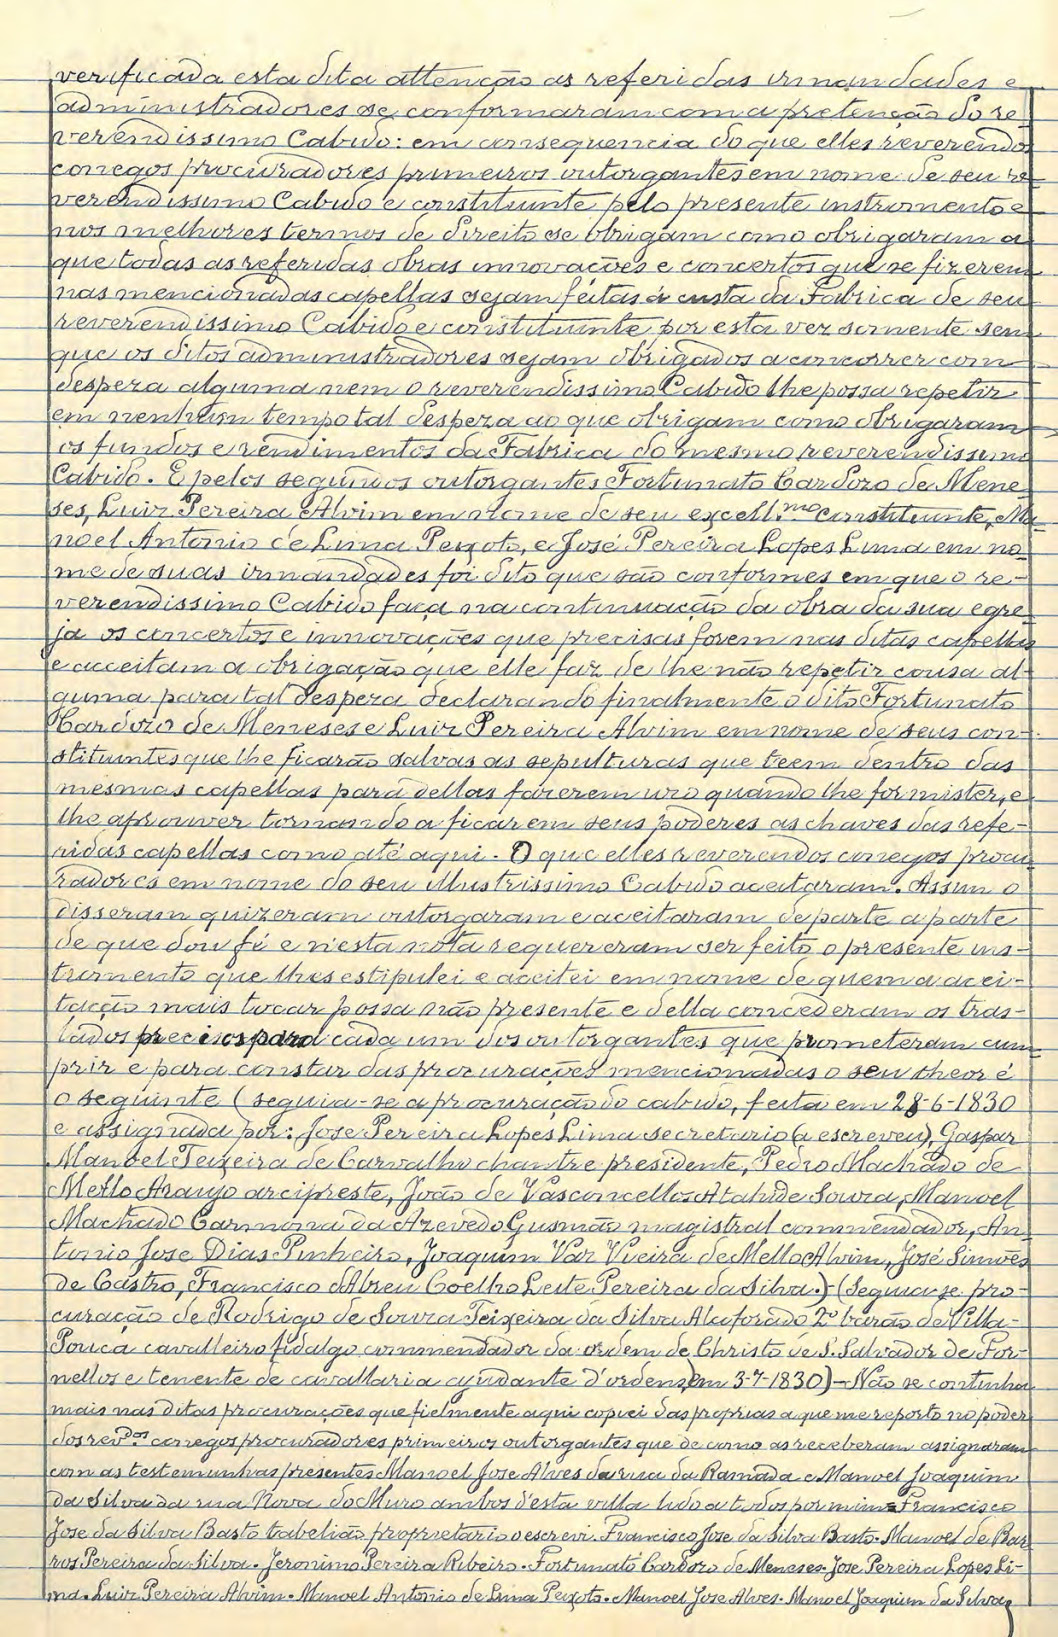 verificada esta dita attenção as referidas irmandades e
administradores se conformaram com a pretenção do re-
verendissimo Cabido: em consequencia do que elles reverendos
conegos procuradores primeiros outorgantes em nome de seu re-
verendissimo Cabido e constituinte pelo presente instromento e
nos melhores termos de direito se obrigam como obrigaram a
que todas as referidas obras innovações e concertos que se fizerem
nas mencionadas capellas sejam feitas á custa da Fabrica de seu
reverendissimo Cabido e constituinte por esta vez somente sem
que os ditos administradores sejam obrigados a concorrer com
despeza alguma nem o reverendissimo Cabido lhe possa repetir
em nenhum tempo tal despeza ao que obrigam como obrigaram
os fundos e rendimentos da Fabrica do mesmo reverendissimo
Cabido. E pelos segundos outorgantes Fortunato Cardozo de Mene-
ses, Luiz Pereira Alvim em nome de seu excell.mo constituinte, Ma-
noel Antonio de Lima Peixoto, e José Pereira Lopes Lima em no-
me de suas irmandades foi dito que são conformes em que o re-
verendissimo Cabido faça na continuação da obra da sua egre-
ja os concertos e innovações que precisas forem nas ditas capellas
e acceitam a obrigação que elle faz de lhe não repetir cousa al-
guma para tal despeza declarando finalmente o dito Fortunato
Cardozo de Meneses e Luiz Pereira Alvim em nome de seus con-
stituintes que lhe ficarão salvas as sepulturas que teem dentro das
mesmas capellas para dellas fazerem uzo quando lhe for mister, e
lhe aprouver tornando a ficar em seus poderes as chaves das refe-
ridas capellas como até aqui. O que elles reverendos conegos procu-
radores em nome do seu illustrissimo Cabido aceitaram. Assim o
disseram quizeram outorgaram e aceitaram de parte a parte
de que dou fé e n'esta nota requereram ser feito o presente ins-
tromento que lhes estipulei e aceitei em nome de quem a acei-
tação mais tocar possa não presente e della concederam os tras-
lados precisos para cada um dos outorgantes que prometeram cum-
prir e para constar das procurações mencionadas o seu theor é
o seguinte (seguia-se a procuração do cabido, feita em 28-6-1830
e assignada por: Jose Pereira Lopes Lima secretario (a escreveu), Gaspar
Manoel Teixeira de Carvalho chantre presidente, Pedro Machado de
Mello Araujo arcipreste, João de Vasconcellos Atahide Souza, Manoel
Machado Carmona da Azevedo Gusmão magistral commendador, An-
tonio Jose Dias Pinheiro, Joaquim Vaz Vieira de Mello Alvim, José Simões
de Castro, Francisco d'Abreu Coelho Leite Pereira da Silva.)-(Seguia-se pro-
curação de Rodrigo de Souza Teixeira da Silva Alcoforado 2º barão de Villa-
Pouca cavalleiro fidalgo, commendador da ordem de Christo de S. Salvador de For-
nellos e tenente de cavallaria ajudante d'ordens, em 3-7-1830)—Não se continha
mais nas ditas procurações que fielmente aqui copiei das proprias a que me reporto no poder
dos rev.dos conegos procuradores primeiros outorgantes que de como as receberam assignaram
com as testemunhas presentes Manoel Jose Alves da rua da Ramada e Manoel Joaquim
da Silva da rua Nova do Muro ambos d'esta villa lido a todos por mim Francisco
Jose da Silva Basto tabelião proprietario o escrevi. Francisco Jose da Silva Basto. Manoel de Bar-
ros Pereira da Silva. Jeronimo Pereira Ribeiro. Fortunato Cardozo de Meneses. Jose Pereira Lopes Li-
ma. Luiz Pereira Alvim. Manoel Antonio de Lima Peixoto. Manoel Jose Alves. Manoel Joaquim da Silva